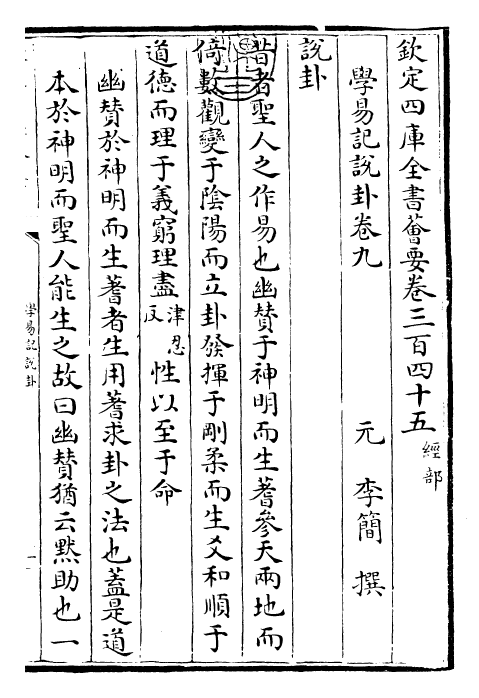 欽定四庫全書薈要卷三百四十五 經部
學易記說卦卷九
元 李簡 撰
說卦
昔者聖人之作易也幽贊于神明而生蓍參天兩地而
倚數觀變于陰陽而立卦發揮于剛柔而生爻和順于
道德而理于義窮理盡津忍反性以至于命
幽贊於神明而生蓍者生用蓍求卦之法也蓋是道
本於神明而聖人能生之故曰幽贊猶云默助也一
學易記說卦
一